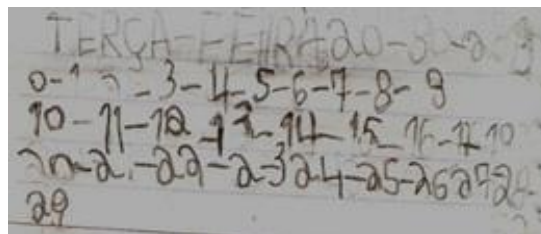 TERÇA-FEIIRA 20-30-2
0-1 - 3-4-5-6-7-8-9
10-11-12-13-14-15-16-17
20-2 -22-2-3 24-25-26 27 28
29